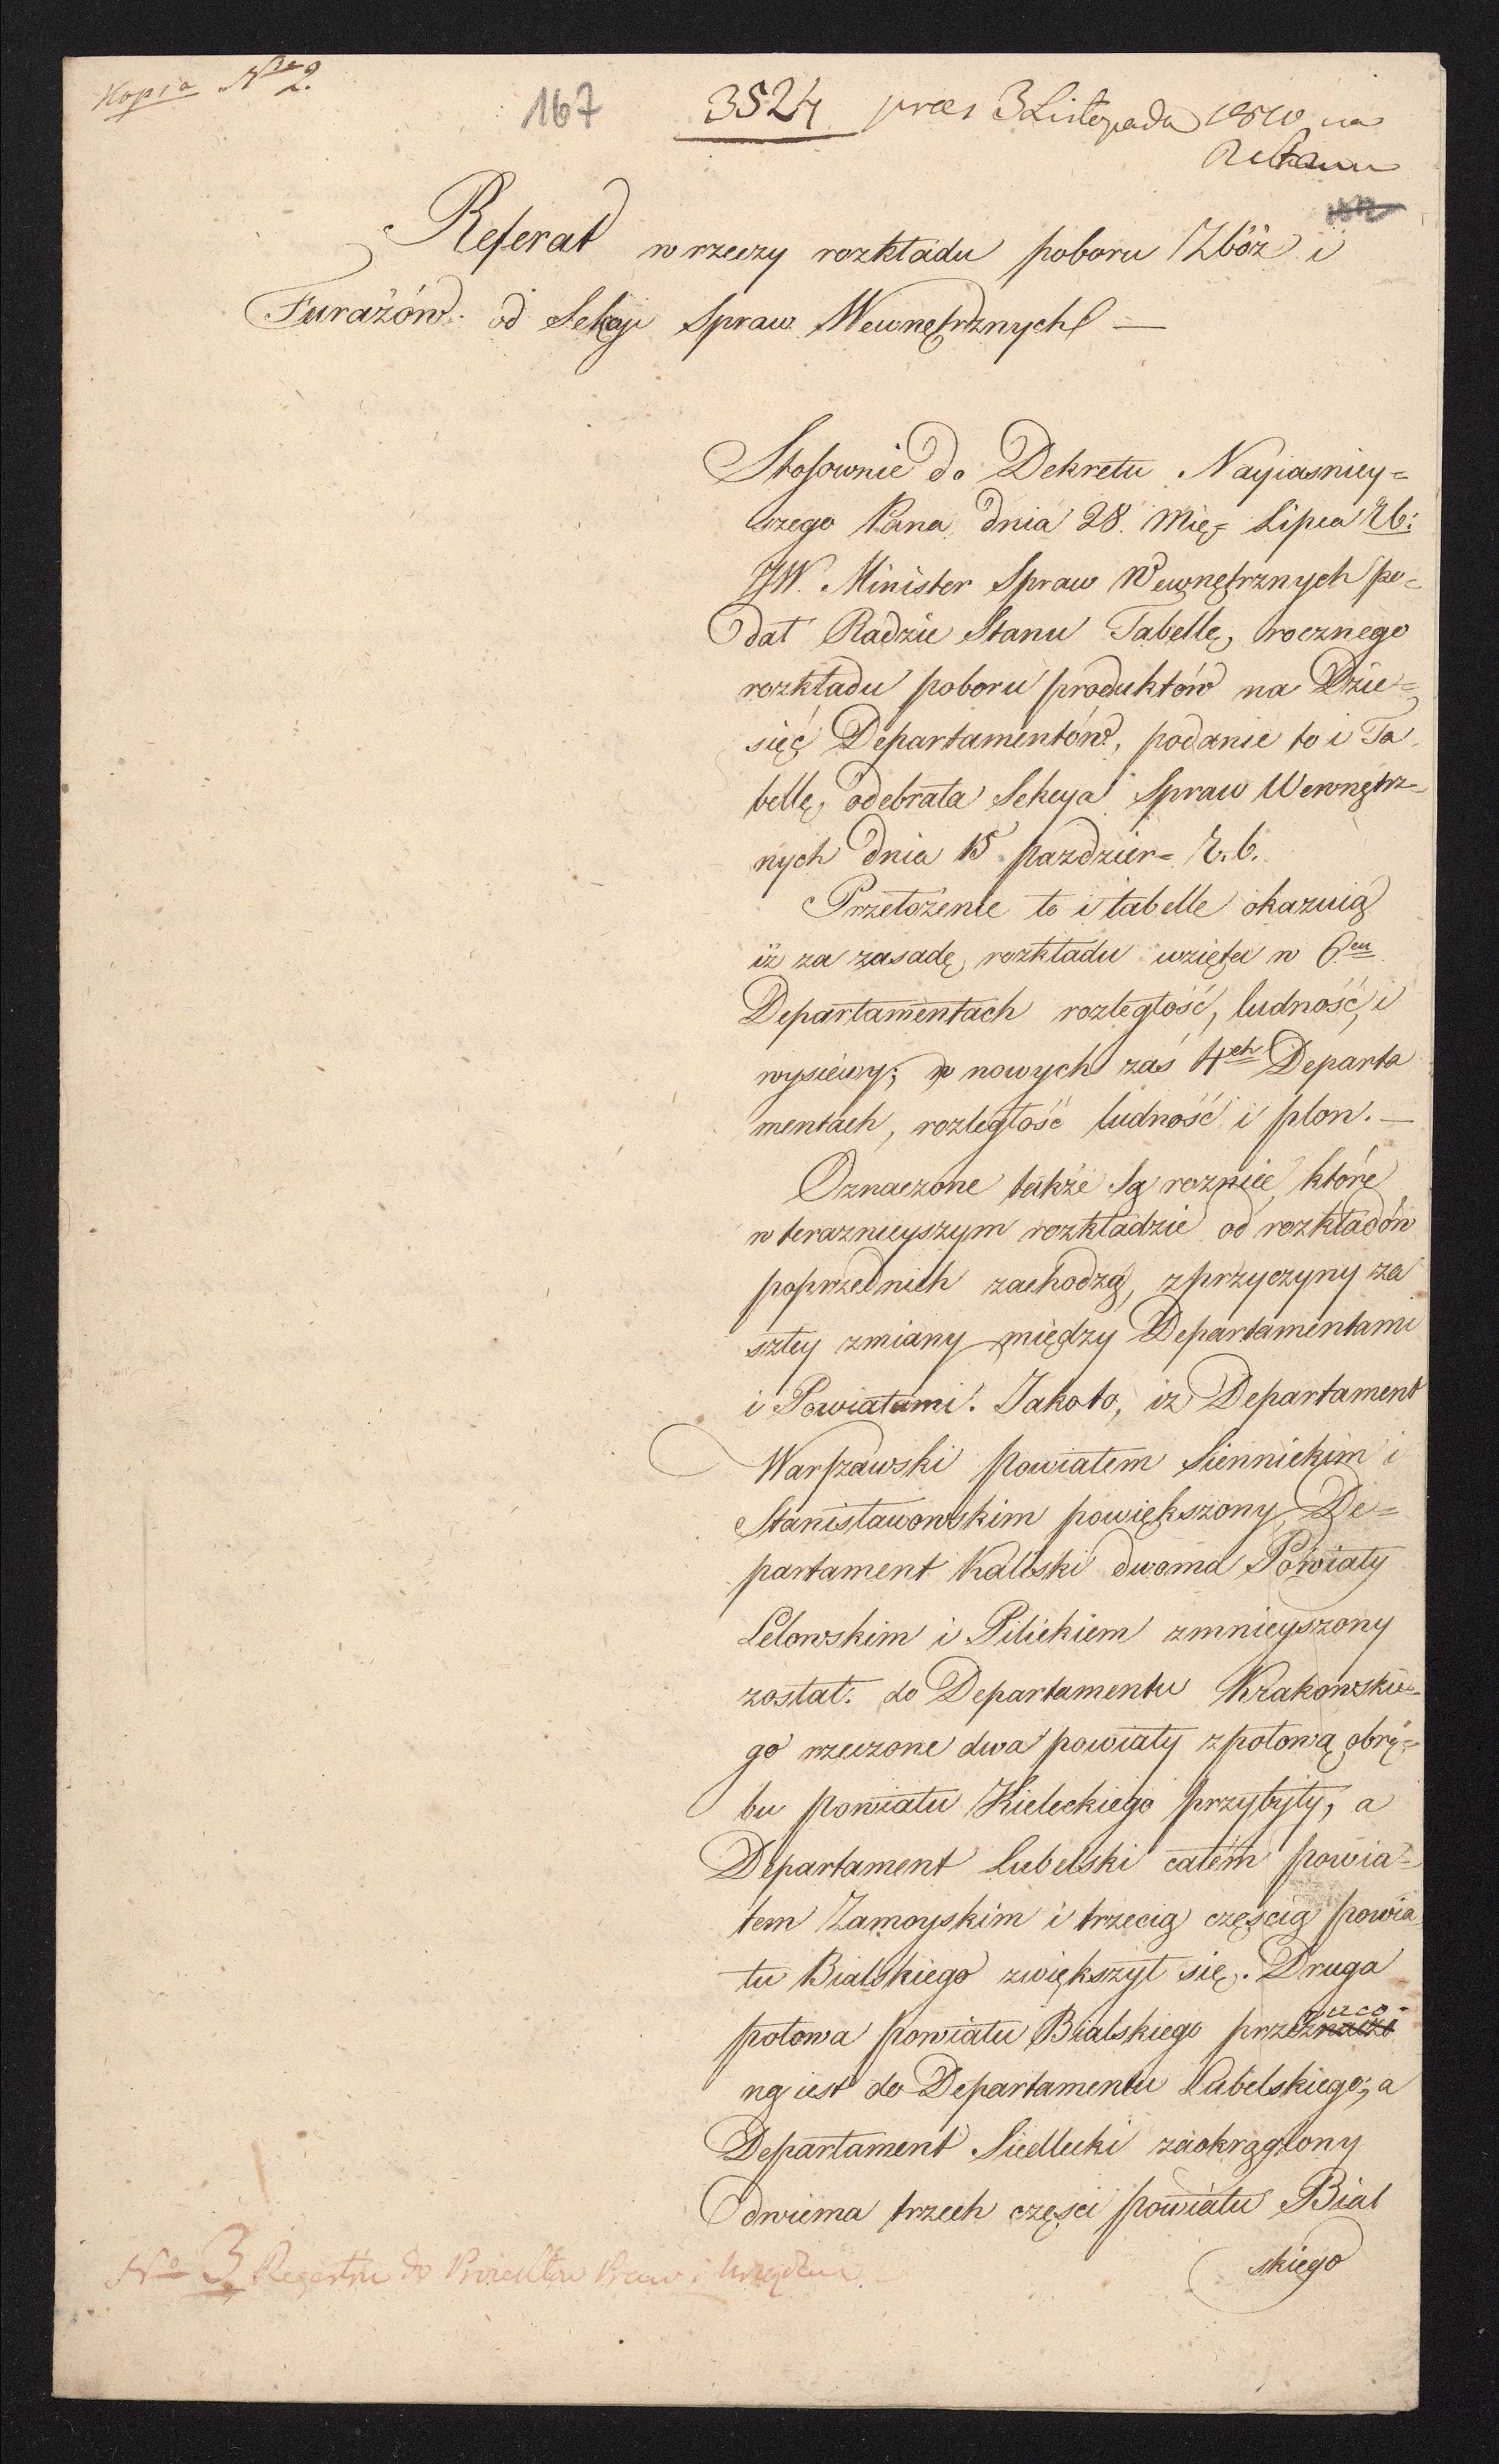 Kopia Nro 2.
167
3524 præs 3 Listopada 1810 na
Referat w rzeczy rozkładu poboru Zbóż i
Furażów od Sekcji Spraw Wewnętrznych —
Stosownie do Dekretu Nayiasniey=
szego Pana dnia 28. Mię= Lipca r.b:
JW. Minister Spraw Wewnętrznych po=
dał Radzie Stanu Tabellę, rocznego
rozkładu poboru produktów na Dzie=
sięć Departamentów, podanie to i Ta
bellę, odebrała Sekcya Spraw Wewnętrz=
nych dnia 15 pazdzier= r.b.
Przełożenie to i tabelle okazuią
iż za zasadę, rozkładu wzięta w 6eu
Departamentach rozległość, ludność, i
wysiewy; w nowych zaś 4ech Departa
mentach, rozległość ludność i plon. —
Oznaczone także są roznice, które
w teraznieyszym rozkładzie od rozkładów
poprzednich zachodzą, z przyczyny za
szłey zmiany między Departamentami
i Powiatami. Jakoto, iz Departament
Warszawski powiatem Siennickim i
Stanisławowskim powiększony, De=
partament Kaliski dwoma Powiaty
Lelowskim i Pilickiem zmnieyszony
został. do Departamentu Krakowskie=
go rzeczone dwa powiaty z połową obrę=
bu powiatu Kieleckiego przybyły, a
Departament Lubelski całém powia=
tem Zamoyskim i trzecią częścią powia
tu Bialskiego zwiększył się. Druga
połowa powiatu Bialskiego przeznaczo
ną iest do Departamentu Lubelskiego; a
Departament Siedlecki zaokrąglony
dwiema trzech częsci powiatu Bial
skiego
No 3 Regestru do Proiektów Praw i Urządzeń